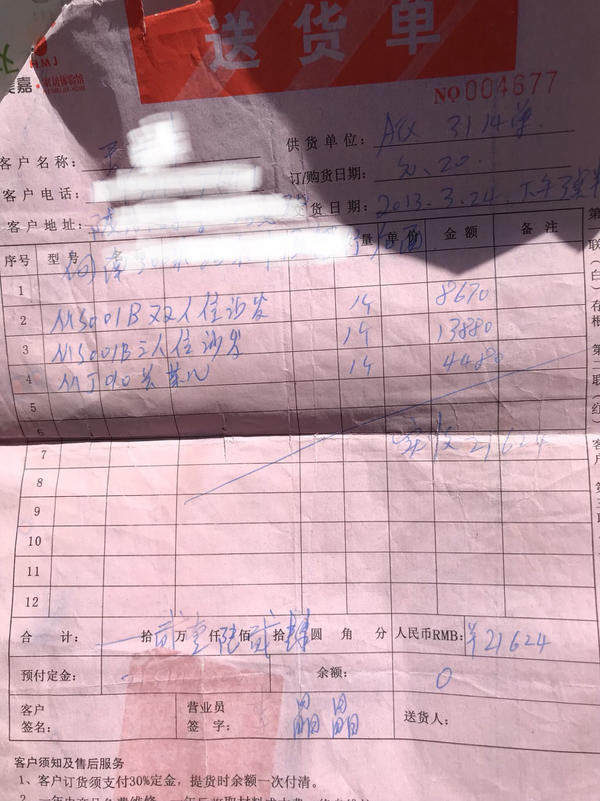 送货单
JWH
美嘉·家居体验馆
NO 004677
供货单位: ACC 3114单
客户名称:
订/购货日期: 20.
客户电话:
货日期: 2013.3.24.
客户地址:
序号 型号 量 单价 金额 备注
1
2 MS001B双人位沙发 1件 8670
3 MS001B三人位沙发 1件 13880
4 MJ010长茶几 1件 4480
5
6
7 实收21624
8
9
10
11
12
合计: 拾贰万壹仟陆佰贰拾肆圆 角 分 人民币RMB: ¥21624
预付定金: 余额: 0
客户签名: 营业员签字: 晶晶 送货人:
客户须知及售后服务
1、客户订货须支付30%定金，提货时余额一次付清。
第
联
(白)
存
根
第
二
联
(红)
客
户
第
三